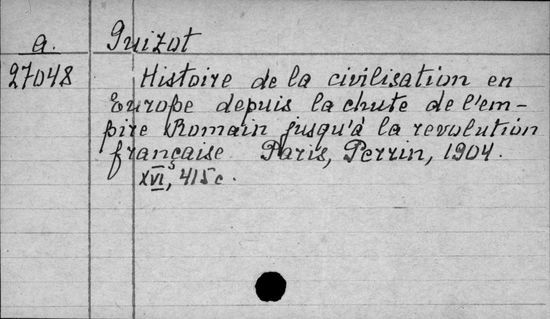 a. Guizot
27048 Histoire de la civilisation en
Europe depuis la chute de l'em-
pire Romain jusqu'à la revolution
française Paris, Perrin, 1904.
XVI, 415 c.